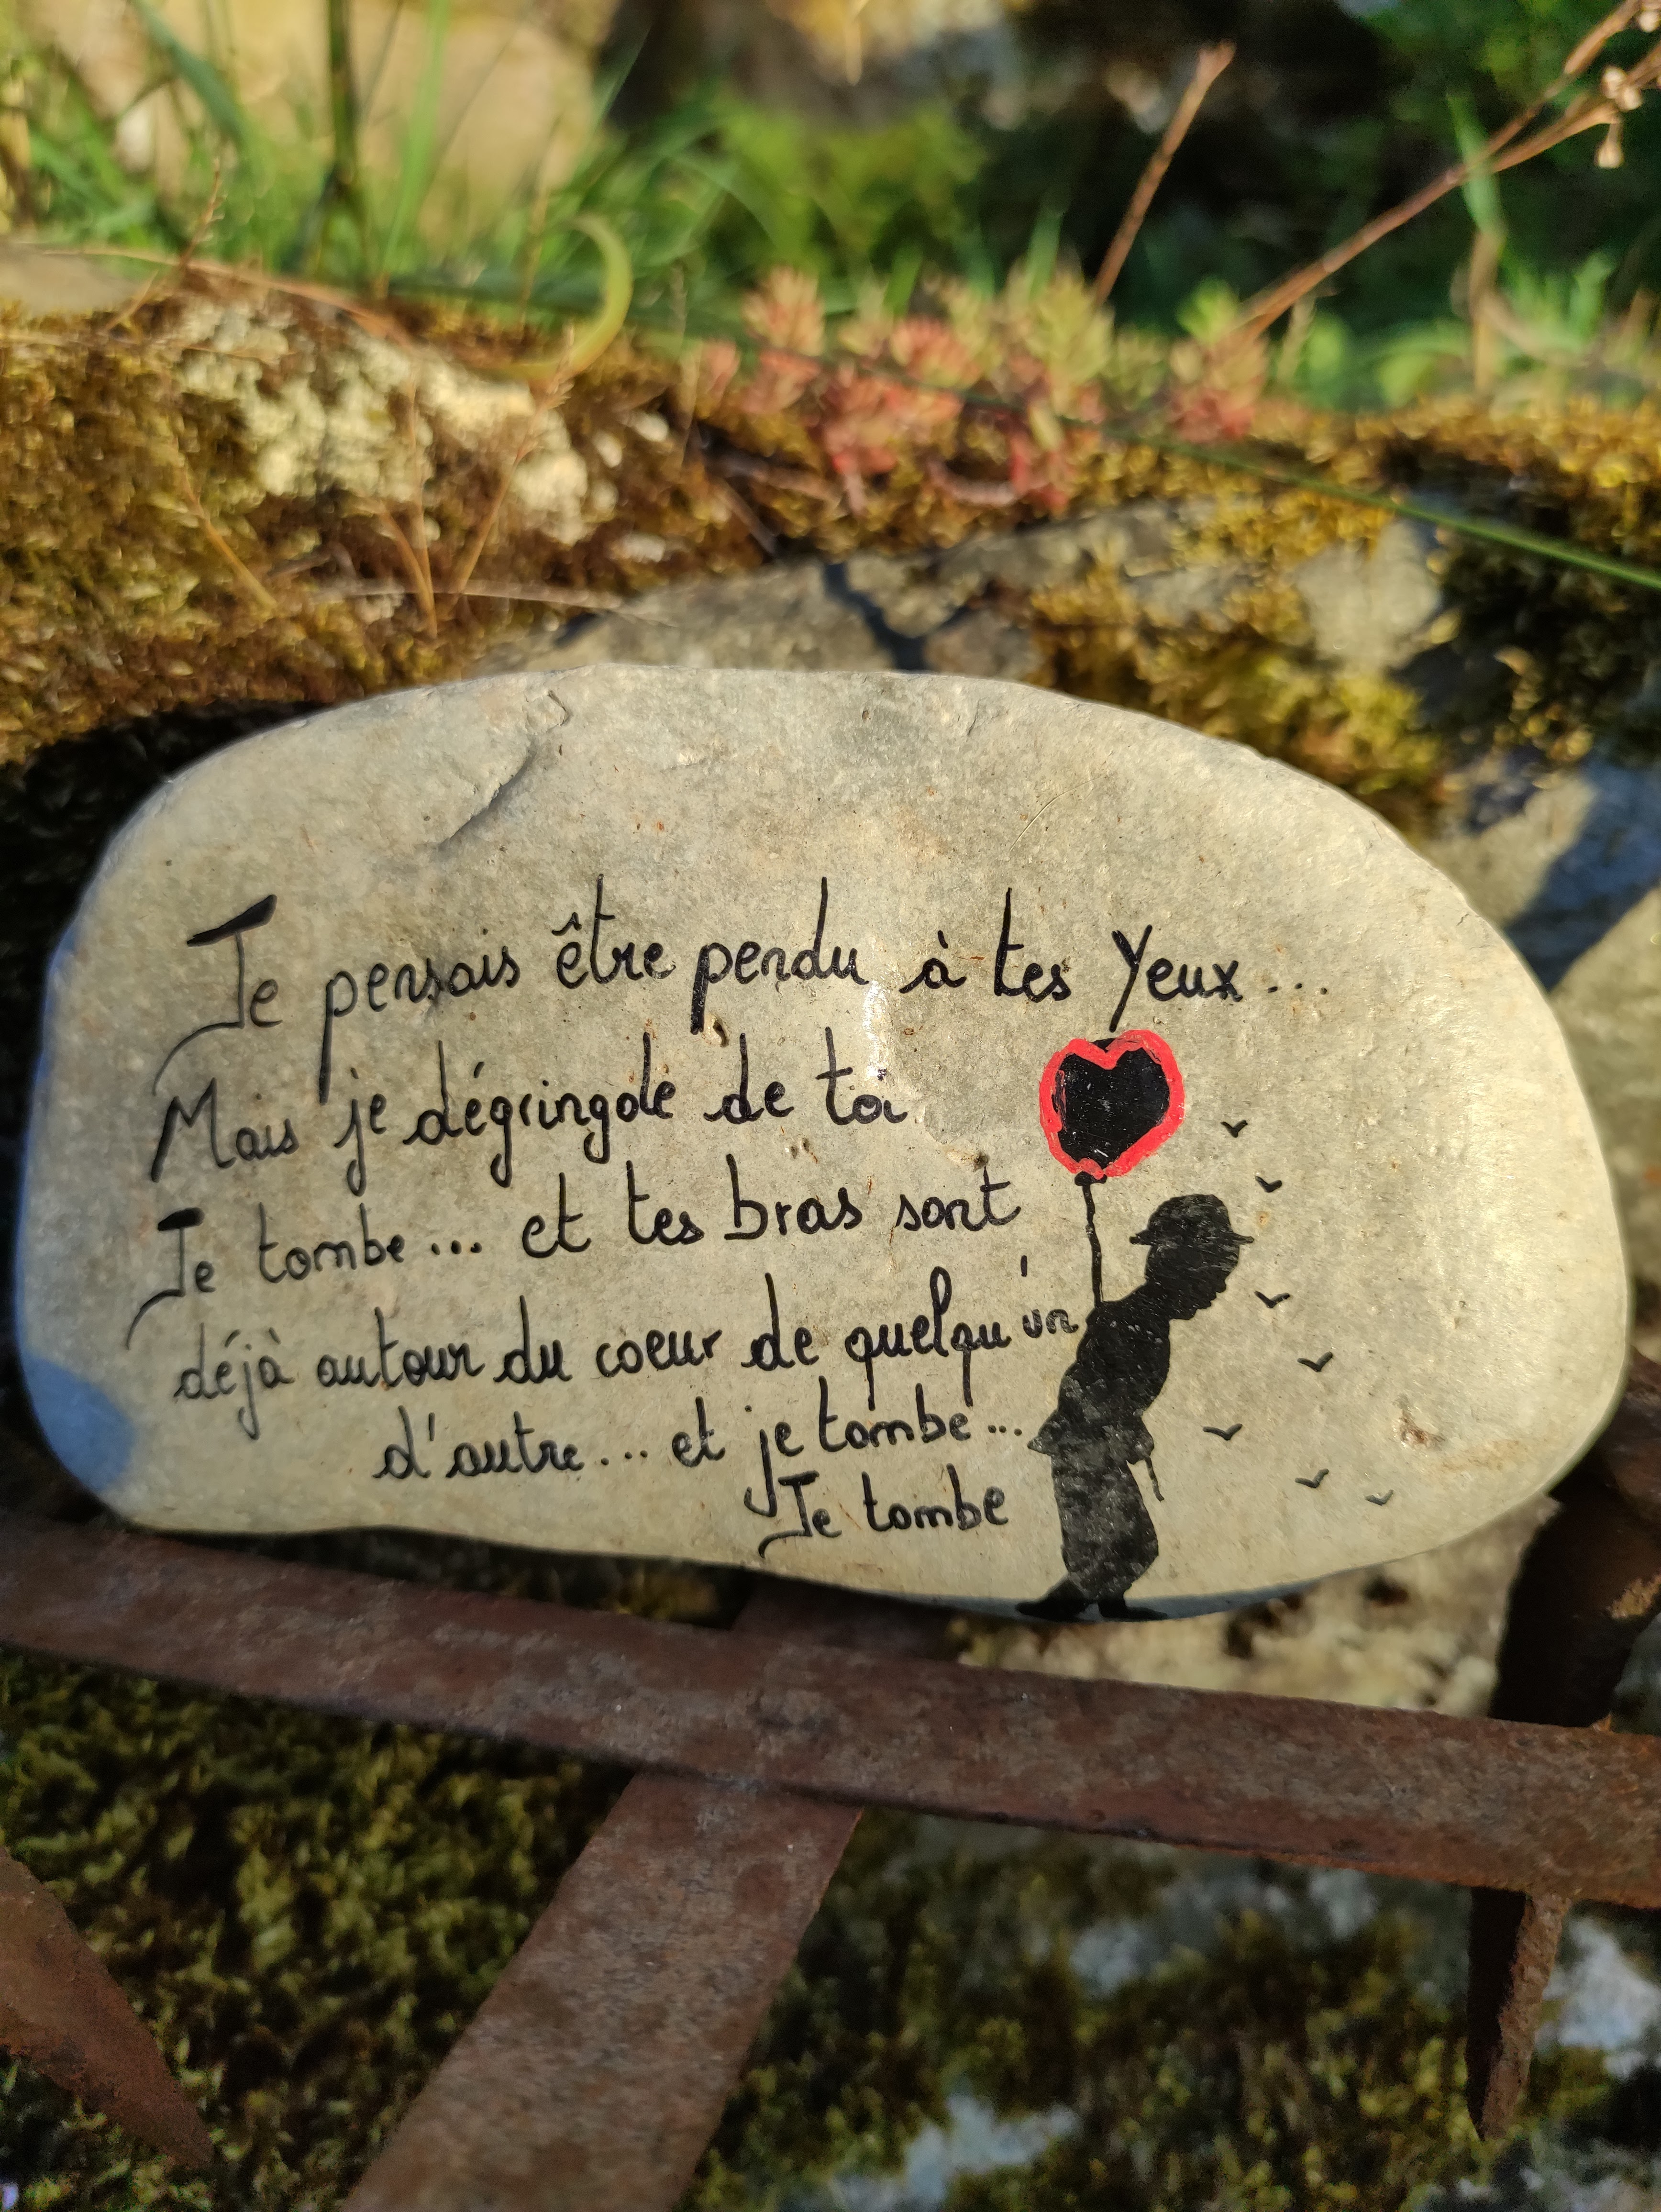 Je pensais être perdu à tes Yeux...
Mais je dégringole de toi
Je tombe... et tes bras sont
déjà autour du coeur de quelqu'un
d'autre... et je tombe...
Je tombe